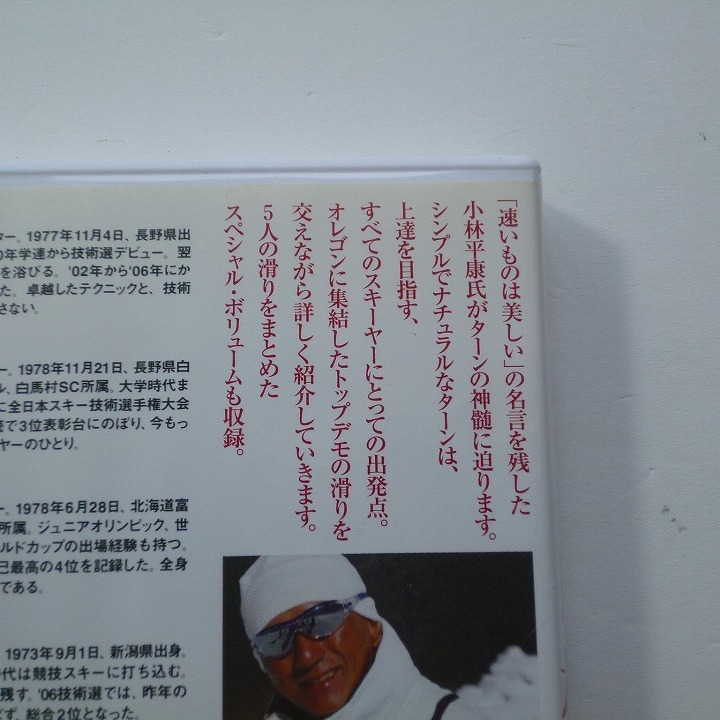 「速いものは美しい」の名言を残した
小林平康氏がターンの神髄に迫ります。
シンプルでナチュラルなターンは、
上達を目指す、
すべてのスキーヤーにとっての出発点。
オレゴンに集結したトップデモの滑りを
交えながら詳しく紹介していきます。
5人の滑りをまとめた
スペシャル・ボリュームも収録。
ー。1977年11月4日、長野県出
0年学連から技術選デビュー。翌
を浴びる。'02年から'06年にか
た。卓越したテクニックと、技術
さない。
ー。1978年11月21日、長野県白
ル、白馬村SC所属。大学時代ま
に全日本スキー技術選手権大会
で3位表彰台にのぼり、今もっ
ヤーのひとり。
ー。1978年6月28日、北海道富
所属。ジュニアオリンピック、世
ルドカップの出場経験も持つ。
己最高の4位を記録した。全身
である。
1973年9月1日、新潟県出身。
代は競技スキーに打ち込む。
残す。'06技術選では、昨年の
ず、総合2位となった。